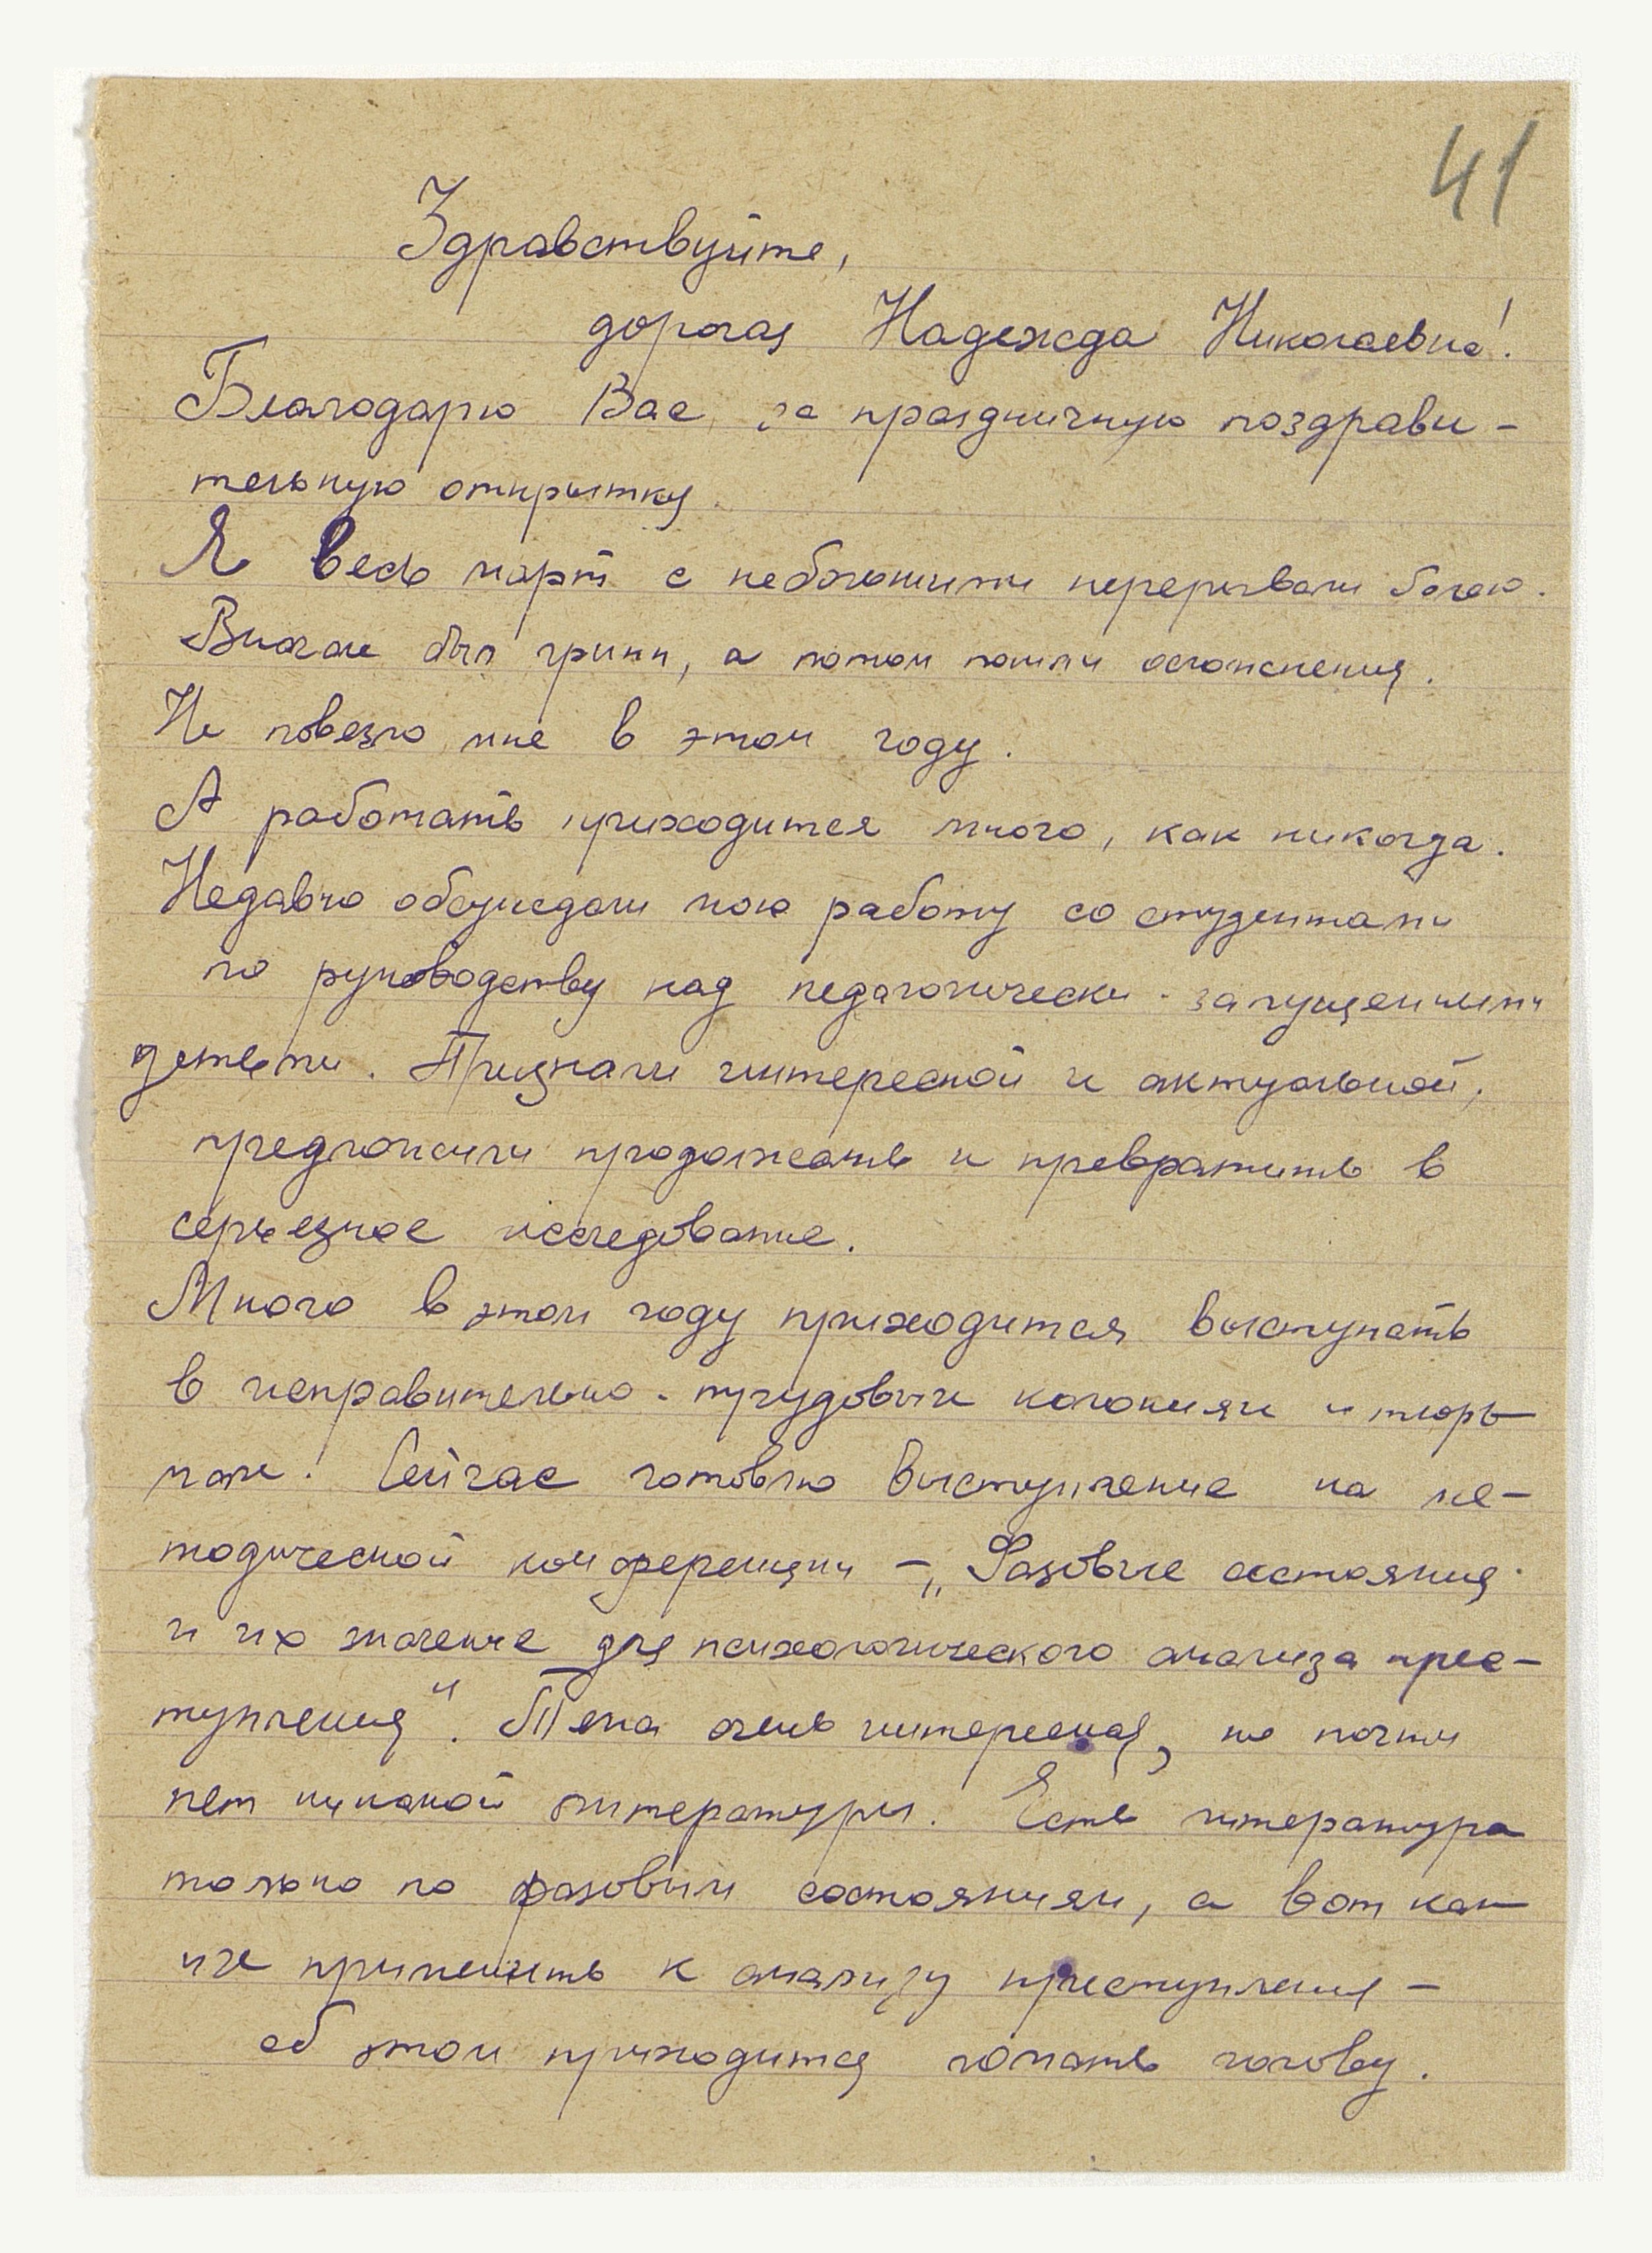 41
Здравствуйте,
дорогая Надежда Николаевна!
Благодарю Вас за праздничную поздрави-
тельную открытку.
Я весь март с небольшими перерывами болею.
Вначале был грипп, а потом пошли осложнения.
Не повезло мне в этом году.
А работать приходится много, как никогда.
Недавно обсуждали мою работу со студентами
по руководству над педагогически-запущенными
детьми. Признали интересной и актуальной,
предложили продолжать и превратить в
серьезное исследование.
Много в этом году приходится выступать
в исправительно-трудовых колониях и тюрь-
мах. Сейчас готовлю выступление на ме-
тодической конференции – „Фазовые состояния
и их значение для психологического анализа прес-
тупления". Тема очень интересная, но почти
нет никакой литературы. Есть литература
только по фазовым состояниям, а вот как
их применить к анализу преступления –
об этом приходится ломать голову.